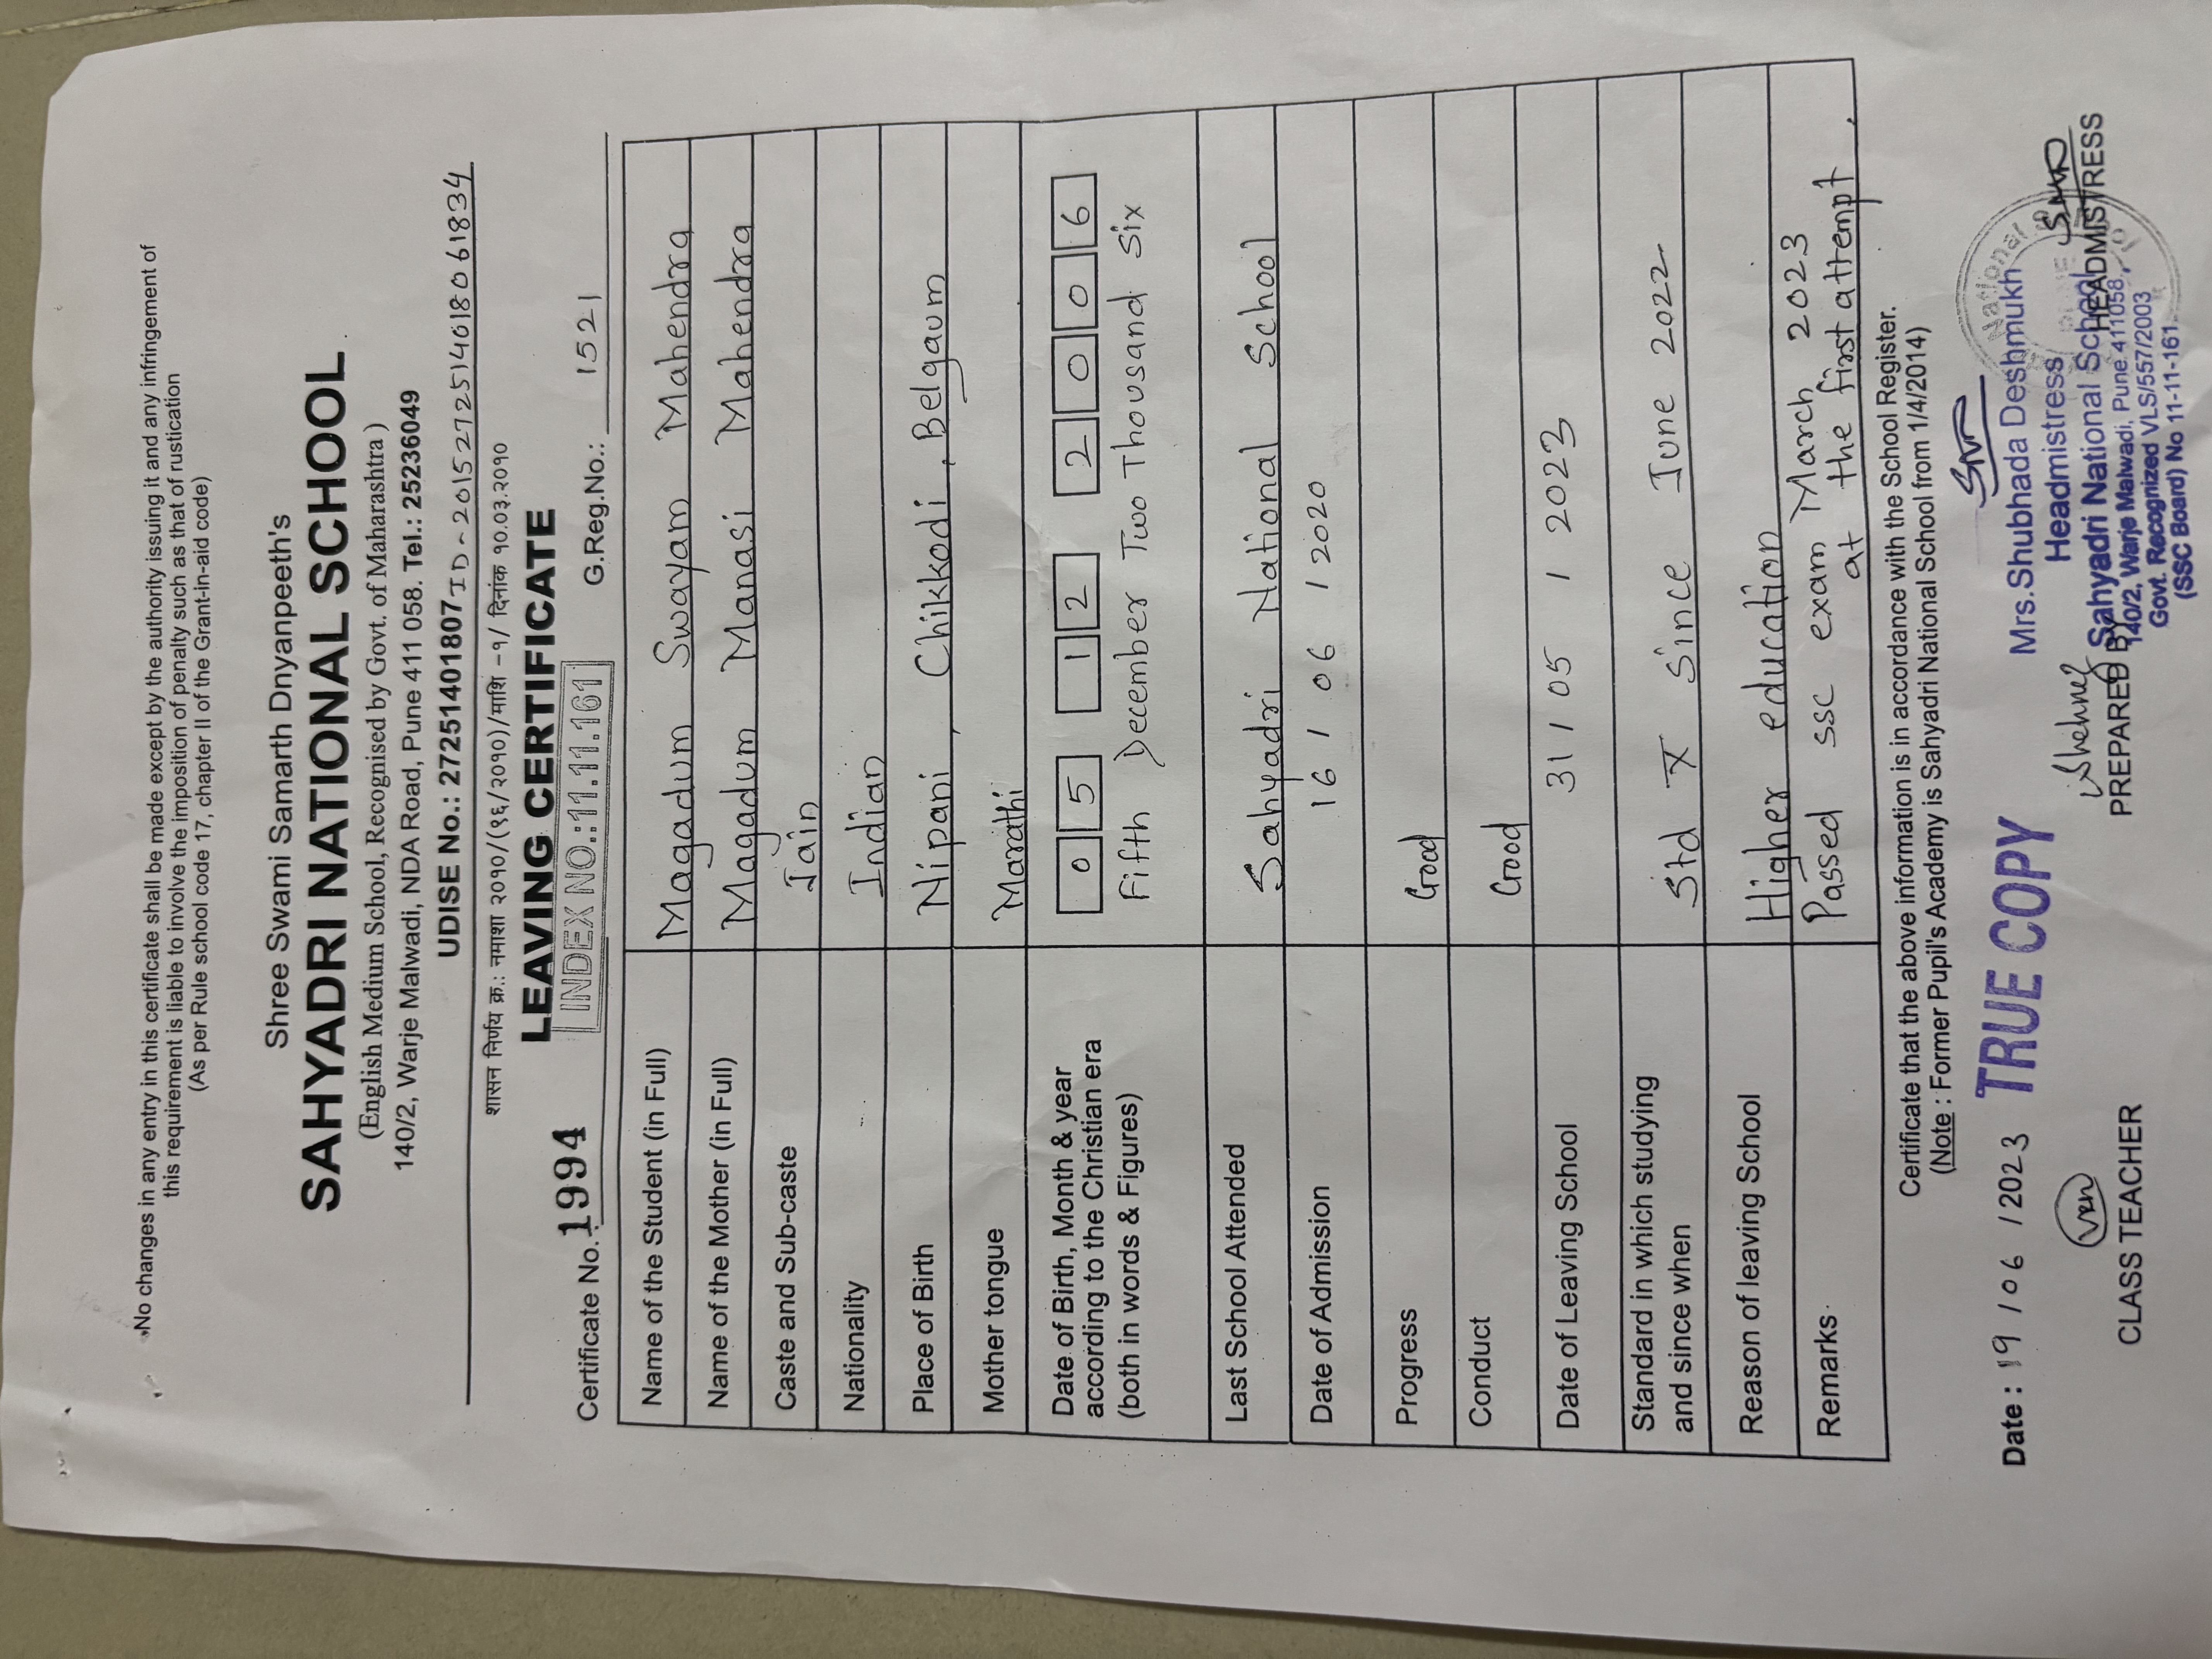 No changes in any entry in this certificate shall be made except by the authority issuing it and any infringement of
this requirement is liable to involve the imposition of penalty such as that of rustication
(As per Rule school code 17, chapter II of the Grant-in-aid code)
Shree Swami Samarth Dnyanpeeth's
SAHYADRI NATIONAL SCHOOL
(English Medium School, Recognised by Govt. of Maharashtra )
140/2, Warje Malwadi, NDA Road, Pune 411 058. Tel.: 25236049
UDISE No.: 27251401807 ID - 2015272514018061834
शासन निर्णय क्र.: नमाशा २०१०/(९६/२०१०)/माशि -१/ दिनांक १०.०३.२०१०
LEAVING CERTIFICATE
INDEX NO.:11.11.161
Certificate No. 1994 G.Reg.No.: 1521
Name of the Student (in Full) Magadum Swayam Mahendra
Name of the Mother (in Full) Magadum Manasi Mahendra
Caste and Sub-caste Jain
Nationality Indian
Place of Birth Nipani, Chikkodi, Belgaum
Mother tongue Marathi
Date of Birth, Month & year 0 5 1 2 2 0 0 6
according to the Christian era
(both in words & Figures) Fifth December Two Thousand Six
Last School Attended Sahyadri National School
Date of Admission 16 / 06 / 2020
Progress Good
Conduct Good
Date of Leaving School 31 / 05 / 2023
Standard in which studying
and since when Std X since June 2022
Reason of leaving School Higher education
Remarks Passed SSC exam March 2023
at the first attempt.
Certificate that the above information is in accordance with the School Register.
(Note : Former Pupil's Academy is Sahyadri National School from 1/4/2014)
Date : 19 / 06 / 2023 TRUE COPY
Mrs.Shubhada Deshmukh
Headmistress
Sahyadri National School
140/2, Warje Malwadi, Pune 411058.
Govt. Recognized VLS/557/2003
(SSC Board) No 11-11-161
CLASS TEACHER PREPARED BY HEADMISTRESS
National